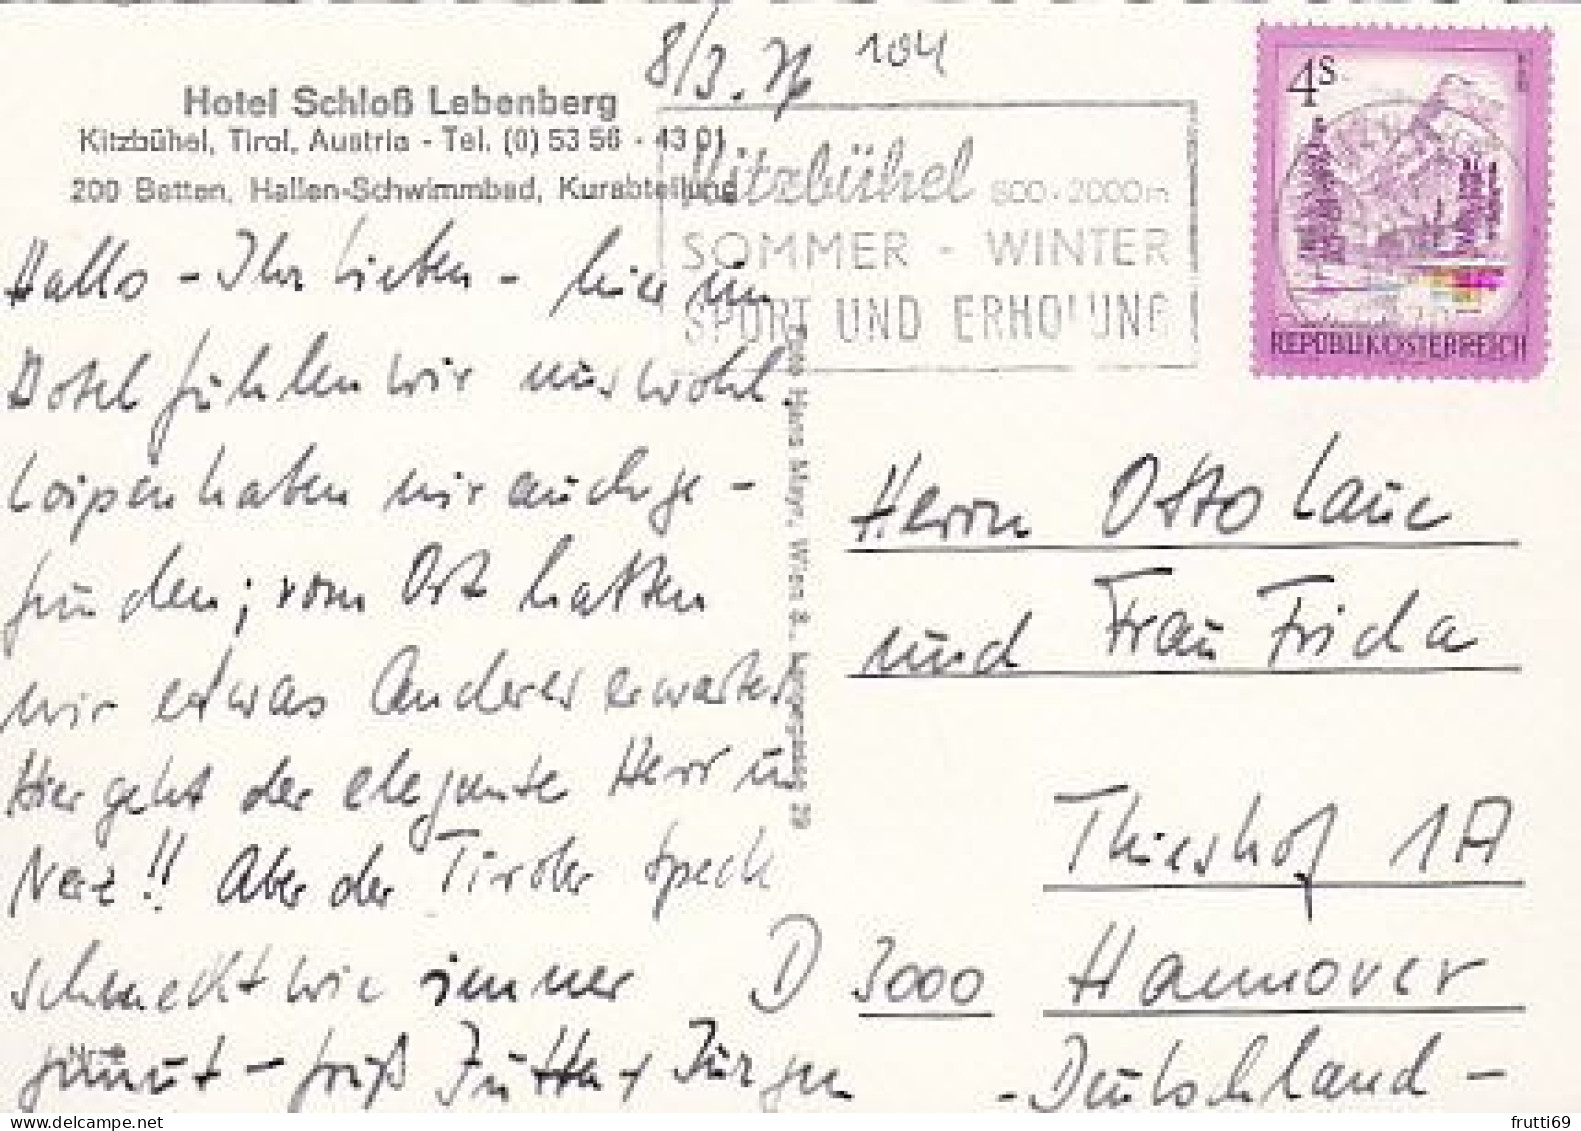 8/3. 76 104
Hotel Schloß Lebenberg
Kitzbühel, Tirol, Austria - Tel. (0) 53 56 - 43 01
200 Betten, Hallen-Schwimmbad, Kurabteilung
Kitzbühel 800-2000m
SOMMER - WINTER
SPORT UND ERHOLUNG
4S
REPUBLIK ÖSTERREICH
Hallo - Ihr Lieben - hier im
Hotel fühlen wir uns wohl,
Loipen haben wir auch ge-
funden; vom Ort hatten
wir etwas Anderes erwartet
Hier geht der elegante Herr im
Nerz!! Aber der Tiroler Speck
schmeckt wie immer
Gruß Jutta + Jürgen
Foto Hans Mayr, Wien 8., 29
Herrn Otto Laue
und Frau Frida
Thieshof 1A
D 3000 Hannover
- Deutschland -
frutti69